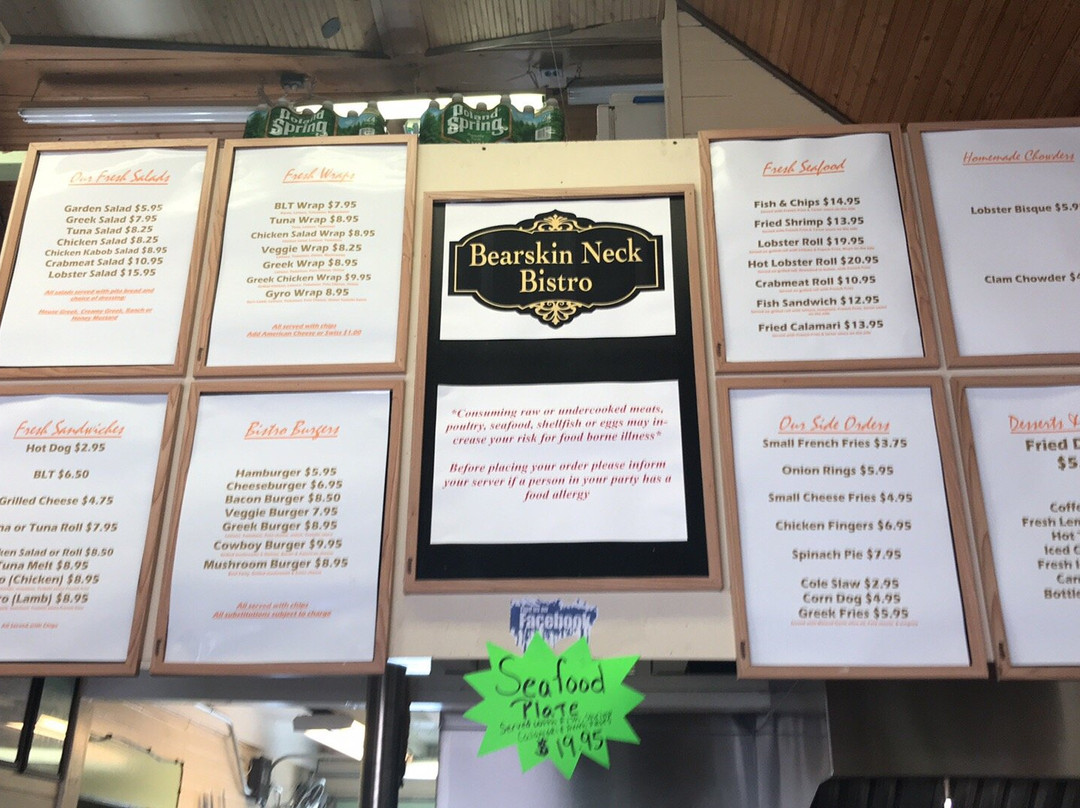 Poland
Spring
Poland
Spring
Our Fresh Salads
Garden Salad $5.95
Greek Salad $7.95
Tuna Salad $8.25
Chicken Salad $8.25
Chicken Kabob Salad $8.95
Crabmeat Salad $10.95
Lobster Salad $15.95
All salads served with pita bread and
choice of dressing:
House Greek, Creamy Greek, Ranch or
Honey Mustard
Fresh Wraps
BLT Wrap $7.95
Tuna Wrap $8.95
Chicken Salad Wrap $8.95
Veggie Wrap $8.25
Greek Wrap $8.95
Greek Chicken Wrap $9.95
Gyro Wrap 8.95
All served with chips
Add American Cheese or Swiss $1.00
Bearskin Neck
Bistro
*Consuming raw or undercooked meats,
poultry, seafood, shellfish or eggs may in-
crease your risk for food borne illness*
Before placing your order please inform
your server if a person in your party has a
food allergy
Fresh Seafood
Fish & Chips $14.95
Fried Shrimp $13.95
Lobster Roll $19.95
Hot Lobster Roll $20.95
Crabmeat Roll $10.95
Fish Sandwich $12.95
Fried Calamari $13.95
Homemade Chowders
Lobster Bisque $5.9
Clam Chowder $
Fresh Sandwiches
Hot Dog $2.95
BLT $6.50
Grilled Cheese $4.75
na or Tuna Roll $7.95
ken Salad or Roll $8.50
Tuna Melt $8.95
o (Chicken) $8.95
ro (Lamb) $8.95
All served with chips
Bistro Burgers
Hamburger $5.95
Cheeseburger $6.95
Bacon Burger $8.50
Veggie Burger 7.95
Greek Burger $8.95
Cowboy Burger $9.95
Mushroom Burger $8.95
All served with chips
All substitutions subject to charge
Our Side Orders
Small French Fries $3.75
Onion Rings $5.95
Small Cheese Fries $4.95
Chicken Fingers $6.95
Spinach Pie $7.95
Cole Slaw $2.95
Corn Dog $4.95
Greek Fries $5.95
Desserts
Fried D
$5
Coffe
Fresh Lem
Hot
Iced C
Fresh I
Can
Bottle
Facebook
Seafood
Plate
Served with Fish, Shrimp
$19.95